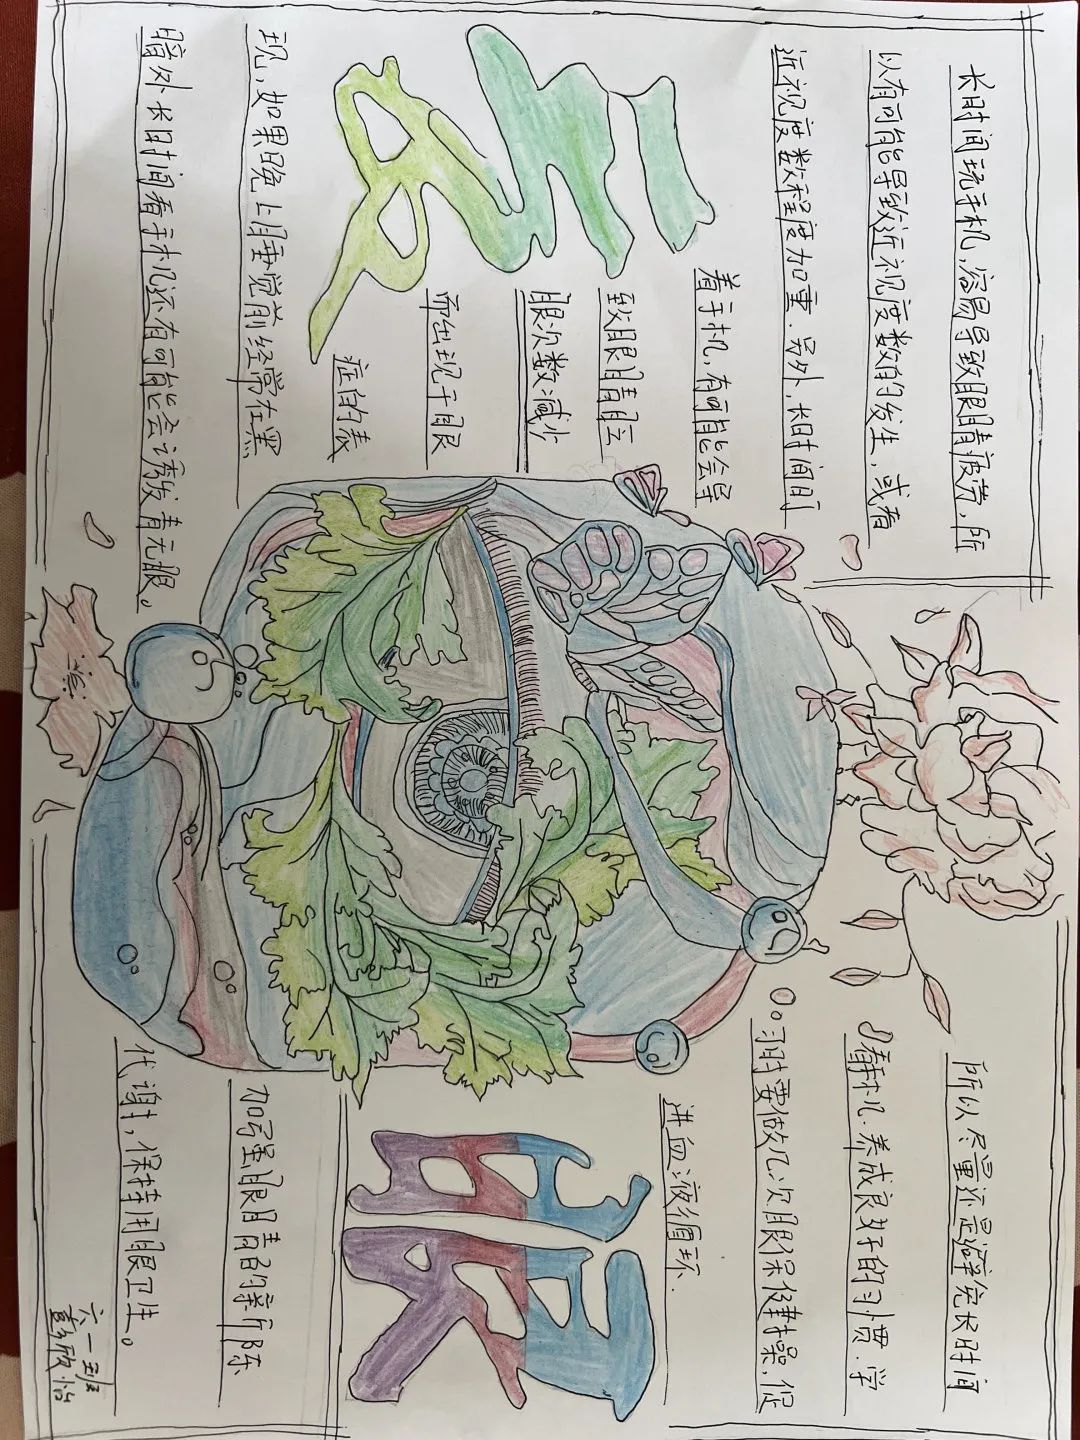 长时间玩手机,容易导致眼睛疲劳,所
以有可能导致近视度数的发生,或者
近视度数程度加重.另外,长时间用
看手机,有可能会导
致眼睛眨
眼次数减少
而出现干眼
症的表
现,如果晚上睡觉前经常在黑
暗处长时间看手机还有可能会诱发青光眼。
爱眼
所以尽量还是避免长时间
看手机.养成良好的习惯.学
习时要做几次眼保健操,促
进血液循环.
加强眼睛的新陈
代谢,保持用眼卫生。
六一班
彭欣怡